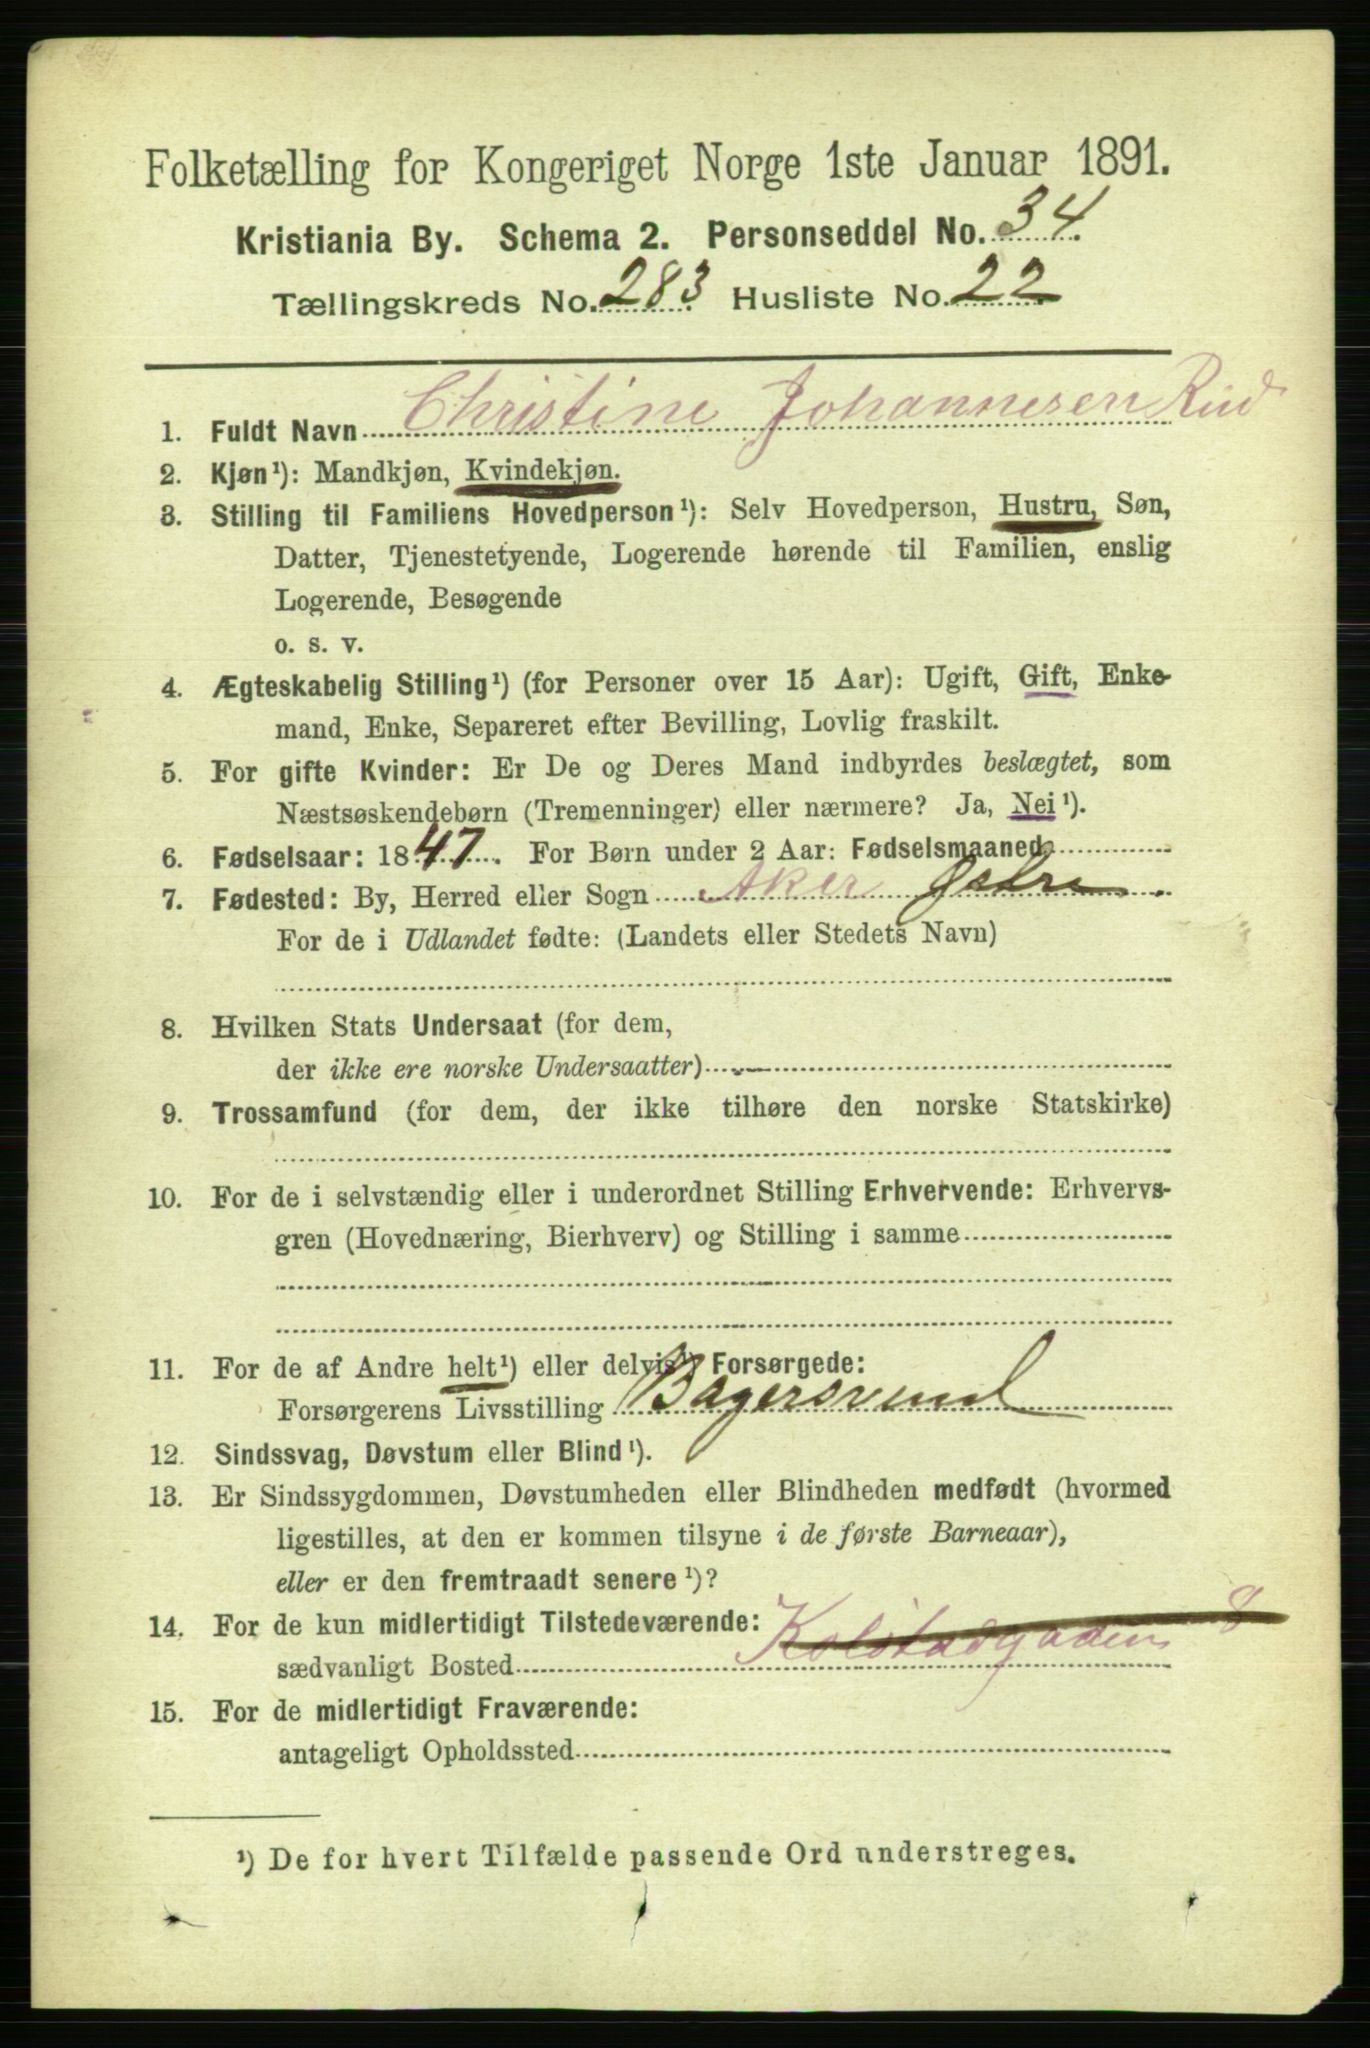 Folketælling for Kongeriget Norge 1ste Januar 1891.
Kristiania By. Schema 2. Personseddel No. 34
Tællingskreds No. 283 Husliste No. 22
1. Fuldt Navn Christine Johannesen Rud
2. Kjøn¹): Mandkjøn, Kvindekjøn.
3. Stilling til Familiens Hovedperson¹): Selv Hovedperson, Hustru, Søn,
Datter, Tjenestetyende, Logerende hørende til Familien, enslig
Logerende, Besøgende
o. s. v.
4. Ægteskabelig Stilling¹) (for Personer over 15 Aar): Ugift, Gift, Enke-
mand, Enke, Separeret efter Bevilling, Lovlig fraskilt.
5. For gifte Kvinder: Er De og Deres Mand indbyrdes beslægtet, som
Næstsøskendebørn (Tremenninger) eller nærmere? Ja, Nei¹).
6. Fødselsaar: 1847. For Børn under 2 Aar: Fødselsmaaned
7. Fødested: By, Herred eller Sogn Aker Østre.
For de i Udlandet fødte: (Landets eller Stedets Navn)
8. Hvilken Stats Undersaat (for dem,
der ikke ere norske Undersaatter)
9. Trossamfund (for dem, der ikke tilhøre den norske Statskirke)
10. For de i selvstændig eller i underordnet Stilling Erhvervende: Erhvervs-
gren (Hovednæring, Bierhverv) og Stilling i samme
11. For de af Andre helt¹) eller delvis¹) Forsørgede:
Forsørgerens Livsstilling Bagersvend
12. Sindssvag, Døvstum eller Blind¹).
13. Er Sindssygdommen, Døvstumheden eller Blindheden medfødt (hvormed
ligestilles, at den er kommen tilsyne i de første Barneaar),
eller er den fremtraadt senere¹)?
14. For de kun midlertidigt Tilstedeværende:
sædvanligt Bosted Kolstadgaden 8
15. For de midlertidigt Fraværende:
antageligt Opholdssted
¹) De for hvert Tilfælde passende Ord understreges.